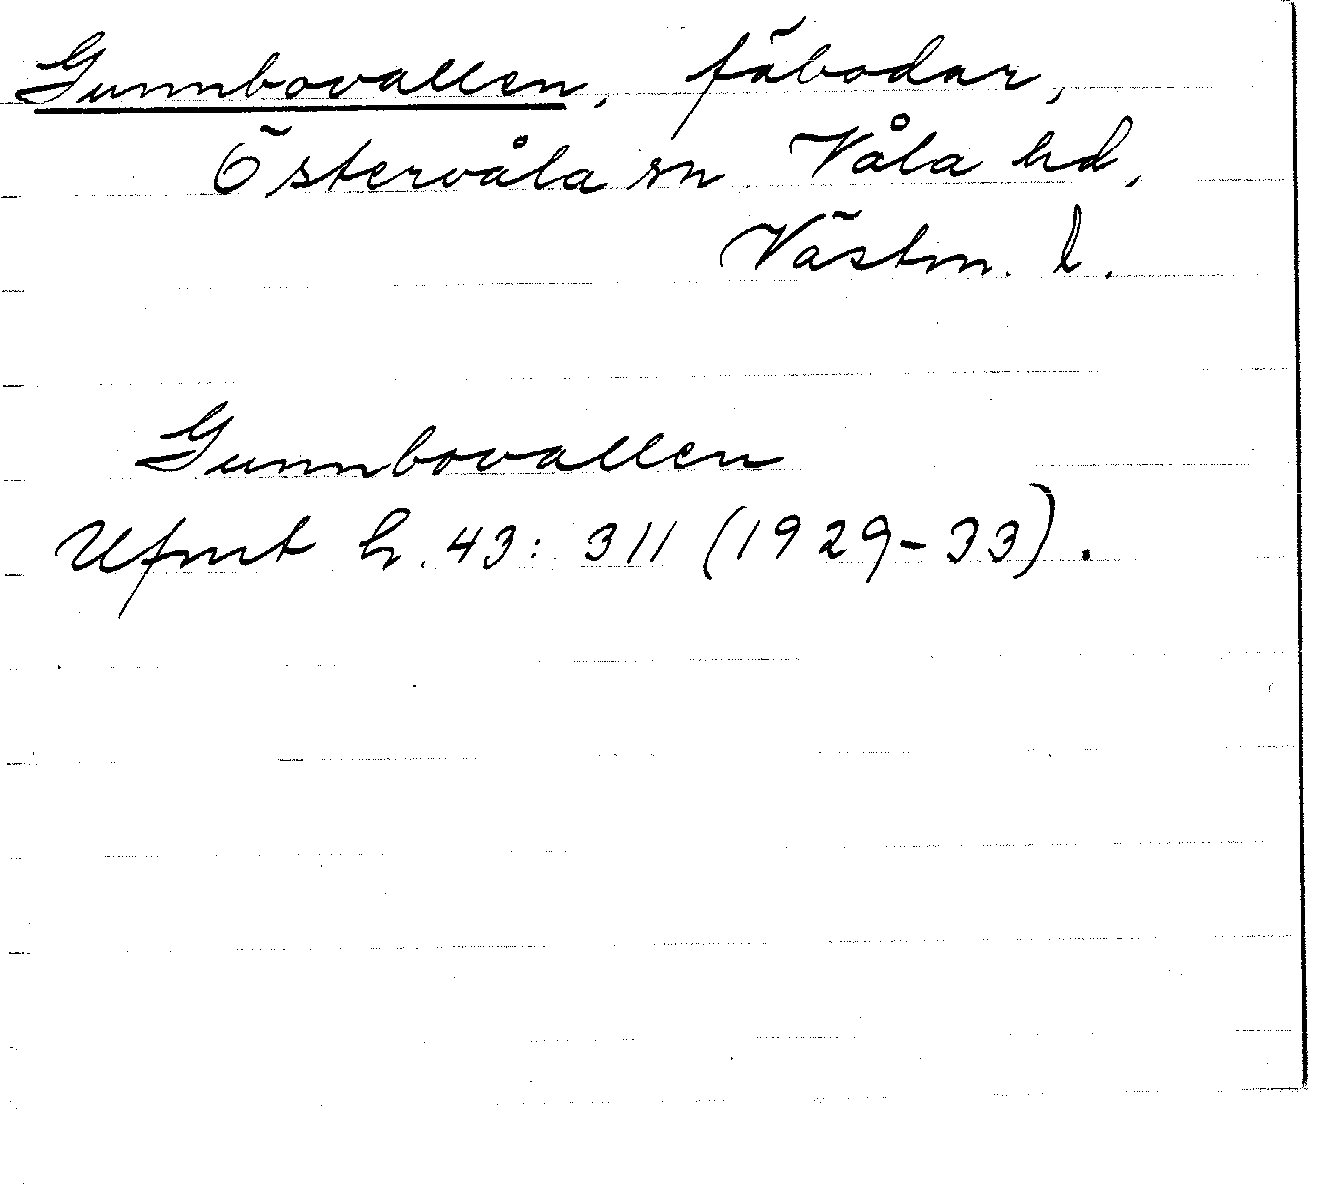 Gunnbovallen, fäbodar,
Östervåla sn Våla hd,
Västm. l.
Gunnbovallen
Ufmt h. 43: 311 (1929-33).